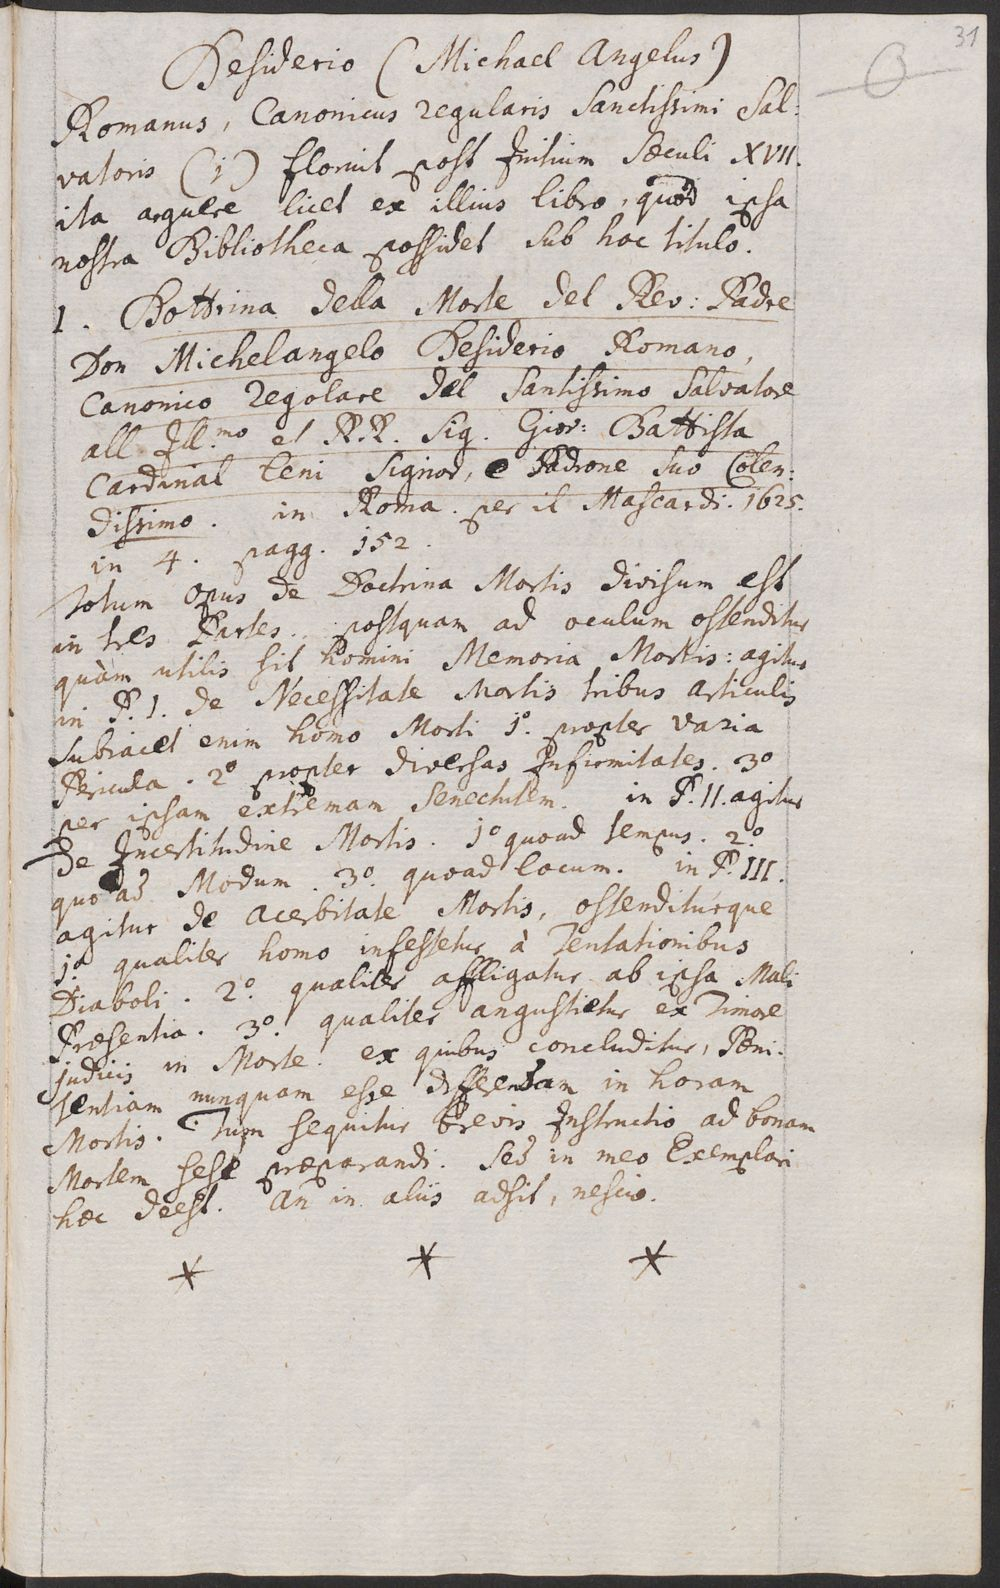 31
Desiderio (Michael Angelus)
Romanus, Canonicus regularis Sanctissimi Sal:
vatoris (1) floruit post Initium Sæculi XVII.
ita arguere licet ex illius libro, quod ipsa
nostra Bibliotheca possidet sub hoc titulo.
1. Dottrina della Morte del Rev: Padre
Don Michelangelo Desiderio Romano,
Canonico regolare del Santissimo Salvatore
all Ill.mo et R.R. Sig. Giov: Battista
Cardinal Leni Signor, e Padrone suo Colen:
dissimo. in Roma. per il Mascardi. 1625.
in 4. pagg. 152.
Totum opus de Doctrina Mortis divisum est
in tres Partes. postquam ad oculum ostenditur
quàm utilis sit homini Memoria Mortis: agitur
in P. I. de Necessitate Mortis tribus articulis
subiacet enim homo Morti 1º. propter varia
Pericula. 2º propter diversas Infirmitates. 3º
per ipsam extremam Senectutem. in P. II. agitur
De Incertitudine Mortis. 1º quoad tempus. 2º.
quoad Modum. 3º. quoad locum. in P. III.
agitur de acerbitate Mortis, ostenditurque
1º qualiter homo infestetur à Tentationibus
Diaboli. 2º. qualiter affligatur ab ipsa Mali
Præsentia. 3º. qualiter angustietur ex Timore
judicis in Morte. ex quibus concluditur, Pœni-
tentiam nunquam esse differendam in horam
Mortis. Tum sequitur brevis Instructio ad bonam
Mortem sese præparandi. Sed in meo Exemplari
hæc deest. An in aliis adsit, nescio.
* * *